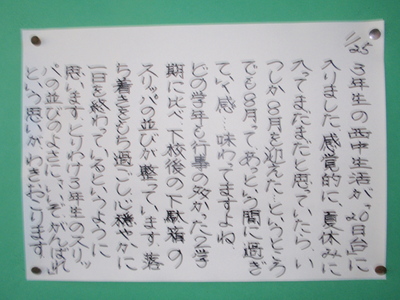 11/25 3年生の西中生活が、「20日台」に
入りました。感覚的に、夏休みに
入ってまだまだと思っていたら、い
つしか8月を迎えた…というところ
でも8月って、あっという間に過ぎ
ていく感…味わてますよね
どの学年も行事の多かった2学
期に比べ、下校後の下駄箱の
スリッパの並びが整ってます。落
ち着きをもち過ごし心穏やかに
一日を終わっているというように
思います。とりわけ3年生のスリッ
パの並びのよさに、いまでがんばれ
という思いがわきあがります